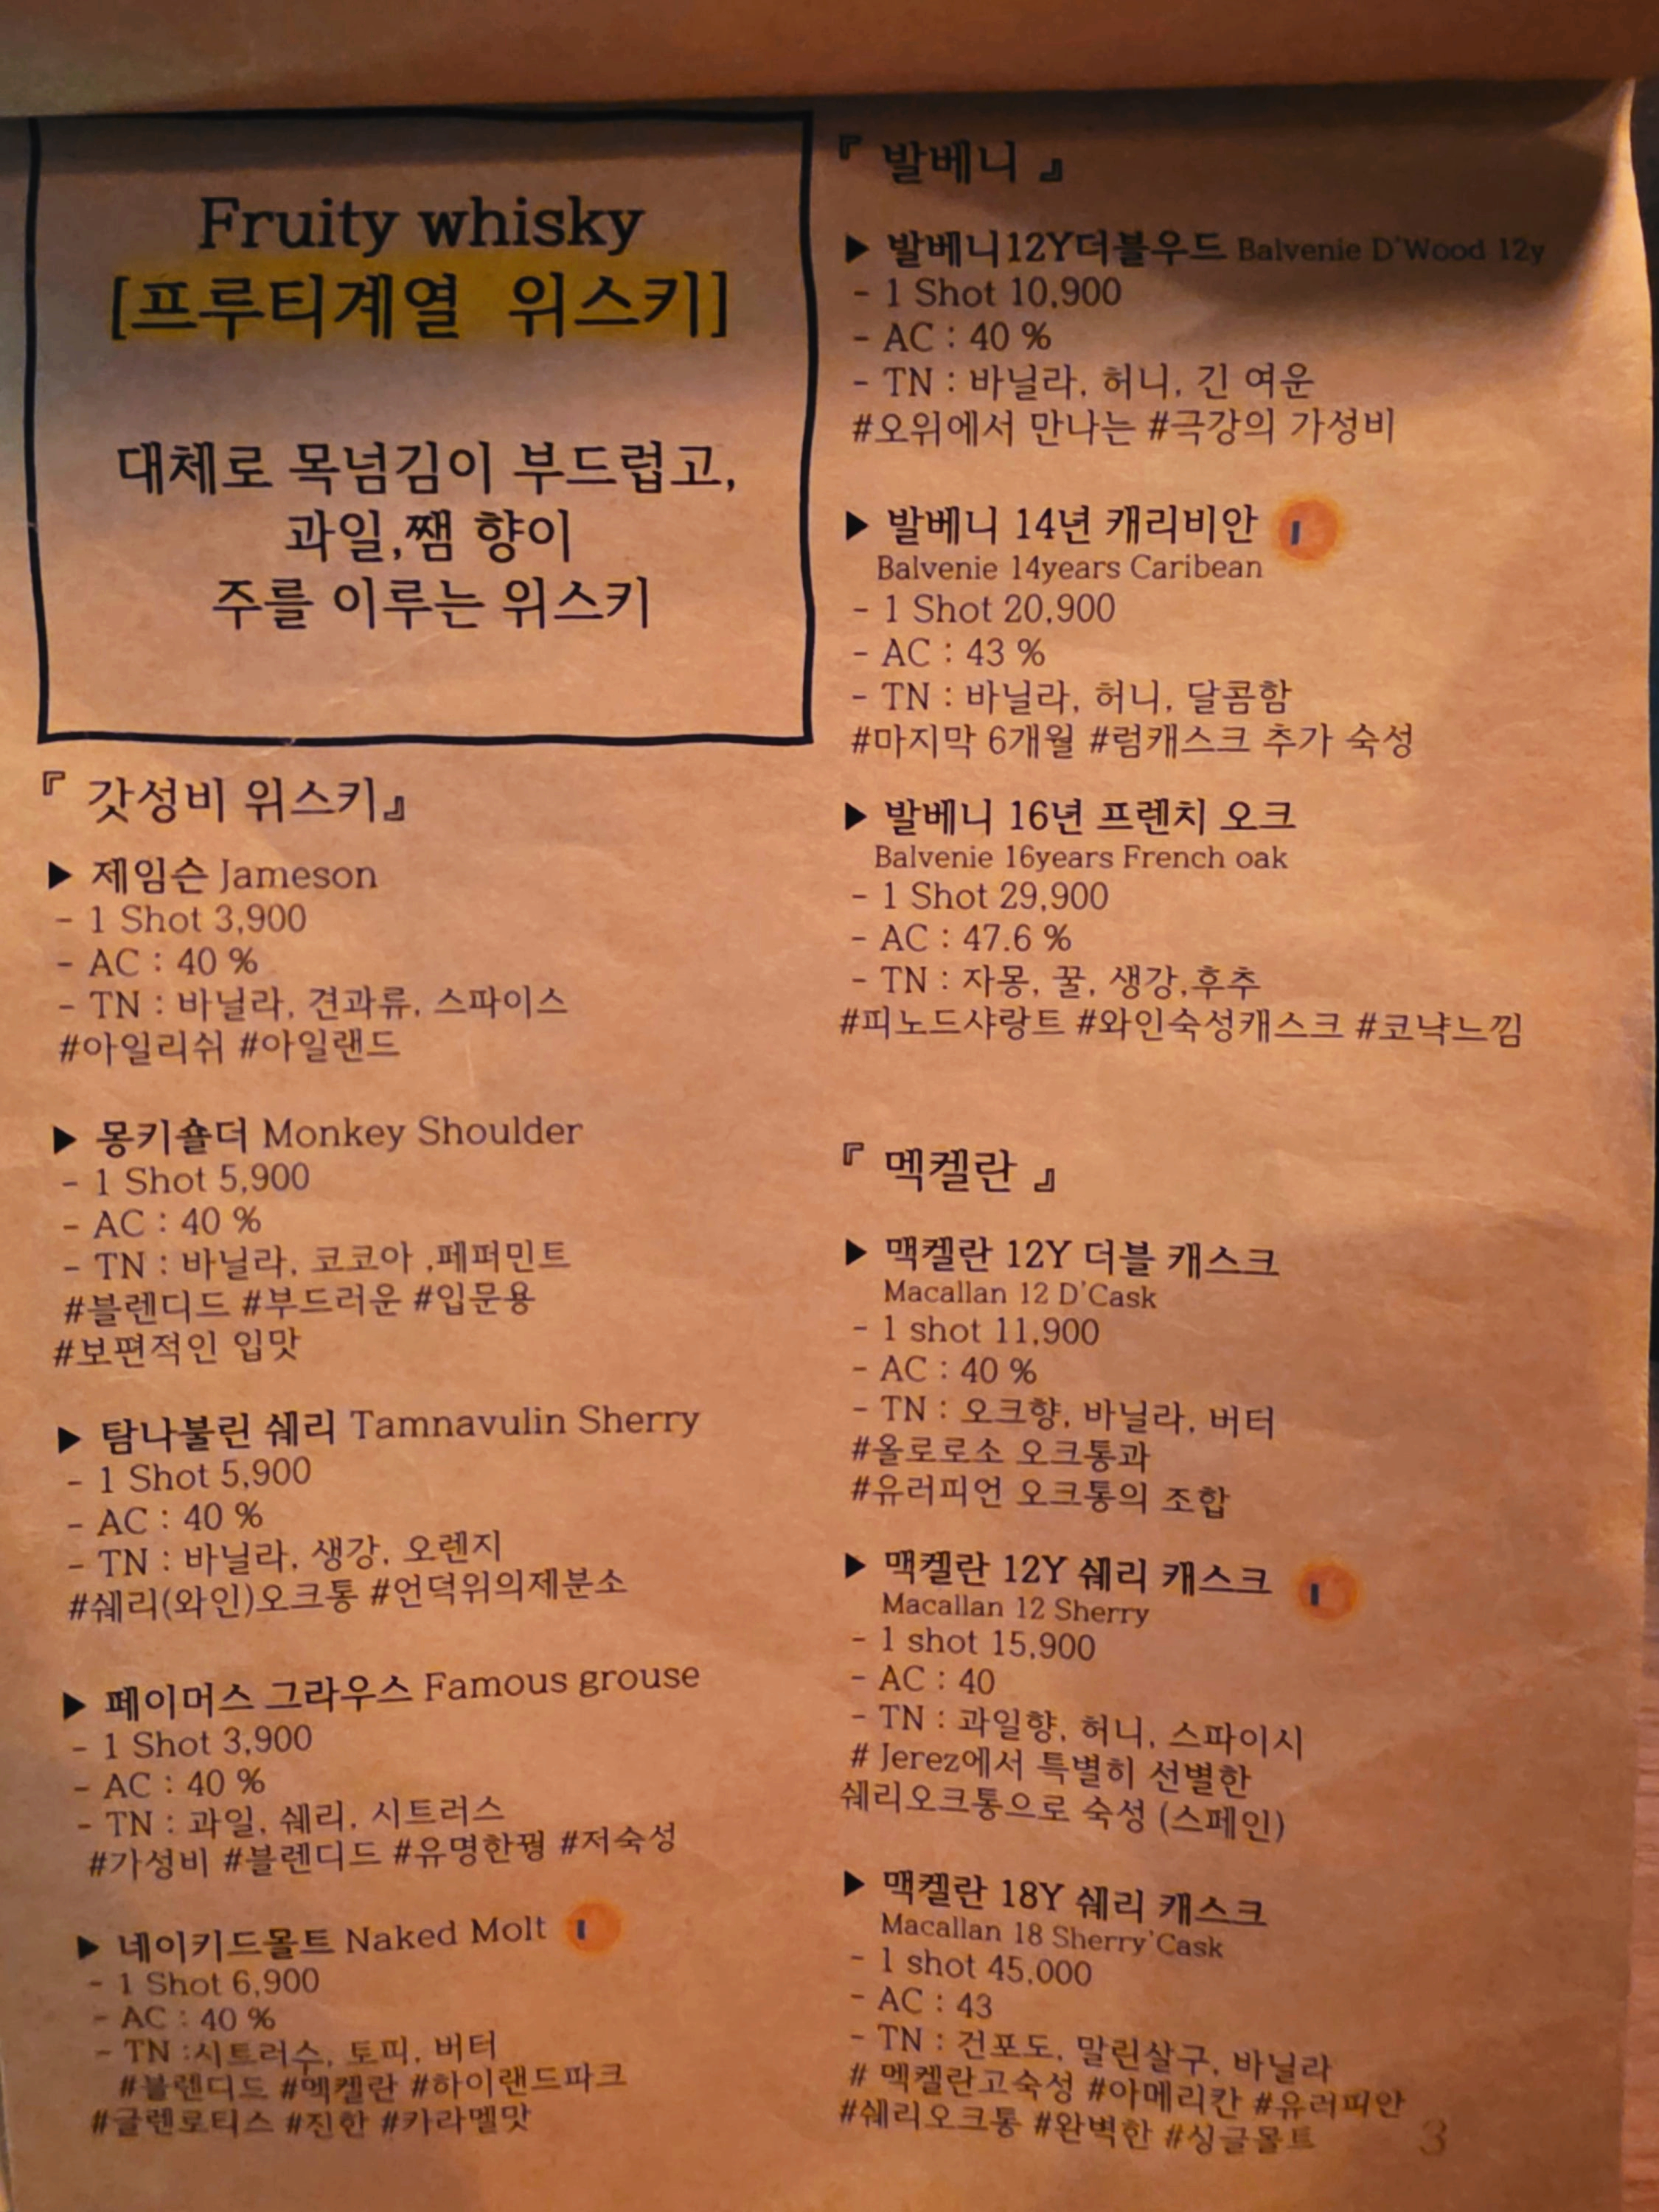 Fruity whisky
[프루티계열 위스키]
대체로 목넘김이 부드럽고,
과일,쨈 향이
주를 이루는 위스키
『 갓성비 위스키』
▶ 제임슨 Jameson
- 1 Shot 3,900
- AC : 40 %
- TN : 바닐라, 견과류, 스파이스
#아일리쉬 #아일랜드
▶ 몽키숄더 Monkey Shoulder
- 1 Shot 5,900
- AC : 40 %
- TN : 바닐라, 코코아 ,페퍼민트
#블렌디드 #부드러운 #입문용
#보편적인 입맛
▶ 탐나불린 쉐리 Tamnavulin Sherry
- 1 Shot 5,900
- AC : 40 %
- TN : 바닐라, 생강, 오렌지
#쉐리(와인)오크통 #언덕위의제분소
▶ 페이머스 그라우스 Famous grouse
- 1 Shot 3,900
- AC : 40 %
- TN : 과일, 쉐리, 시트러스
#가성비 #블렌디드 #유명한꿩 #저숙성
▶ 네이키드몰트 Naked Molt
- 1 Shot 6,900
- AC : 40 %
- TN :시트러수, 토피, 버터
#블렌디드 #멕켈란 #하이랜드파크
#글렌로티스 #진한 #카라멜맛
『 발베니 』
▶ 발베니12Y더블우드 Balvenie D'Wood 12y
- 1 Shot 10,900
- AC : 40 %
- TN : 바닐라, 허니, 긴 여운
#오위에서 만나는 #극강의 가성비
▶ 발베니 14년 캐리비안
Balvenie 14years Caribean
- 1 Shot 20,900
- AC : 43 %
- TN : 바닐라, 허니, 달콤함
#마지막 6개월 #럼캐스크 추가 숙성
▶ 발베니 16년 프렌치 오크
Balvenie 16years French oak
- 1 Shot 29,900
- AC : 47.6 %
- TN : 자몽, 꿀, 생강,후추
#피노드샤랑트 #와인숙성캐스크 #코냑느낌
『 멕켈란 』
▶ 맥켈란 12Y 더블 캐스크
Macallan 12 D'Cask
- 1 shot 11,900
- AC : 40 %
- TN : 오크향, 바닐라, 버터
#올로로소 오크통과
#유러피언 오크통의 조합
▶ 맥켈란 12Y 쉐리 캐스크
Macallan 12 Sherry
- 1 shot 15,900
- AC : 40
- TN : 과일향, 허니, 스파이시
# Jerez에서 특별히 선별한
쉐리오크통으로 숙성 (스페인)
▶ 맥켈란 18Y 쉐리 캐스크
Macallan 18 Sherry'Cask
- 1 shot 45,000
- AC : 43
- TN : 건포도, 말린살구, 바닐라
# 멕켈란고숙성 #아메리칸 #유러피안
#쉐리오크통 #완벽한 #싱글몰트
3